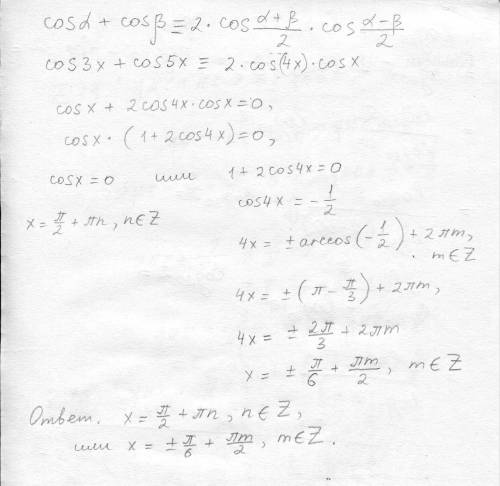 cosα + cosβ ≡ 2·cos (α+β)/2 · cos (α−β)/2
cos3x + cos5x ≡ 2·cos(4x)·cosx
cosx + 2cos4x·cosx=0,
cosx·(1+2cos4x)=0,
cosx=0 или 1+2cos4x=0
x= π/2 + πn, n∈Z
cos4x = −1/2
4x= ±arccos(−1/2)+2πm, m∈Z
4x= ±(π−π/3)+2πm,
4x= ± 2π/3 + 2πm
x= ± π/6 + πm/2, m∈Z
Ответ. x= π/2 + πn, n∈Z,
или x= ± π/6 + πm/2, m∈Z.